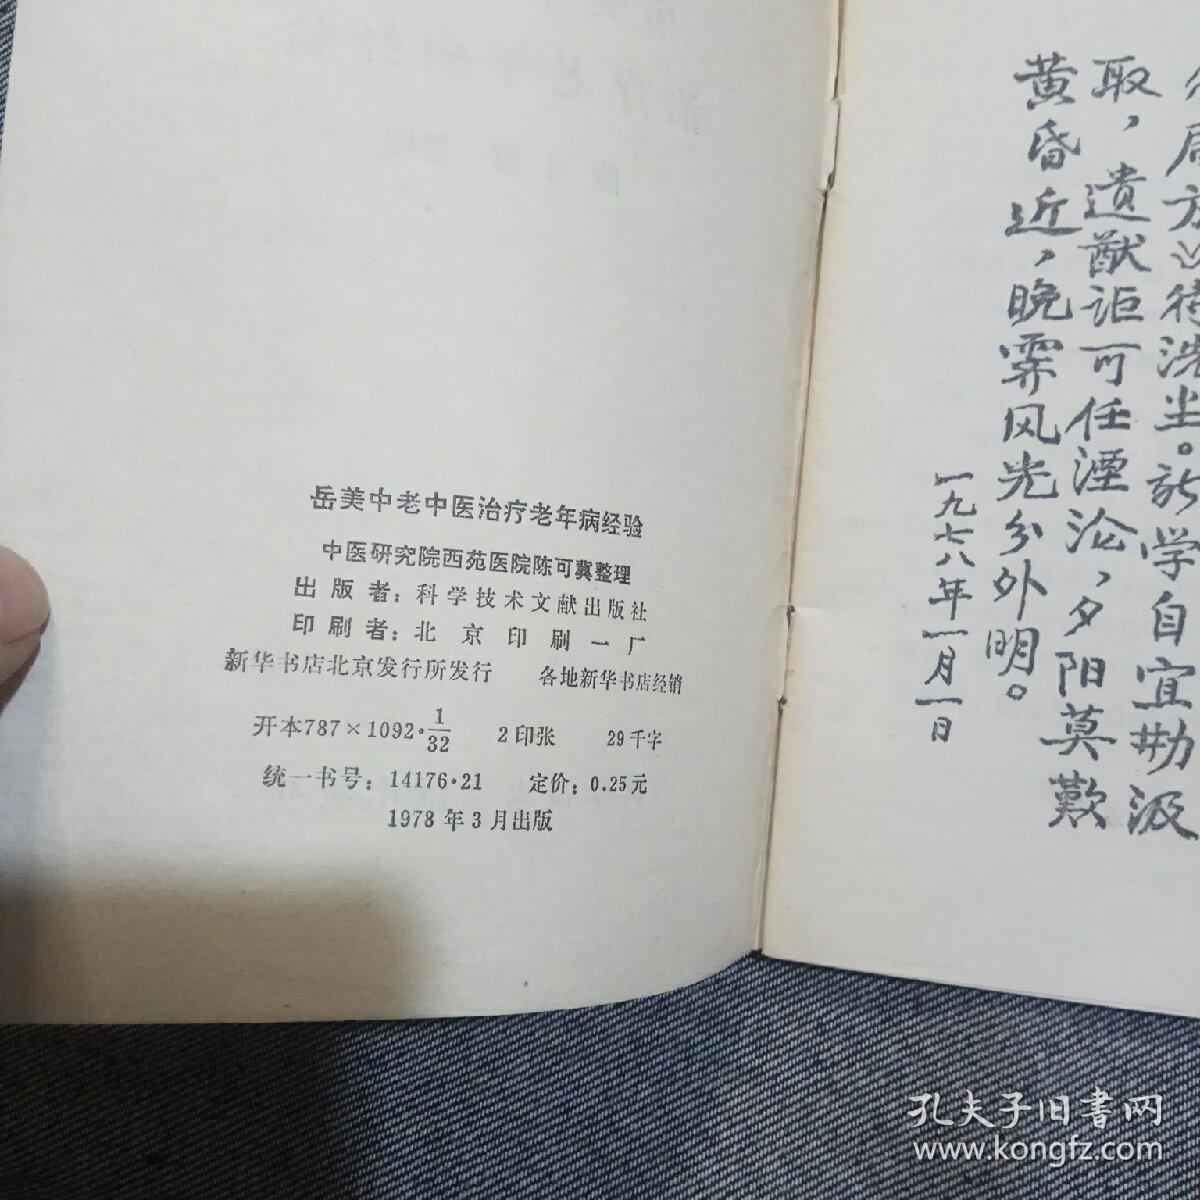 岳美中老中医治疗老年病经验
中医研究院西苑医院陈可冀整理
出版者：科学技术文献出版社
印刷者：北京印刷一厂
新华书店北京发行所发行 各地新华书店经销
开本787×1092·1/32 2印张 29千字
统一书号：14176·21 定价：0.25元
1978年3月出版
局方》待洗尘。新学自宜勤汲
取，遗猷讵可任湮沦，夕阳莫歎
黄昏近，晚霁风光分外明。
一九七八年一月一日
孔夫子旧书网
www.kongfz.com